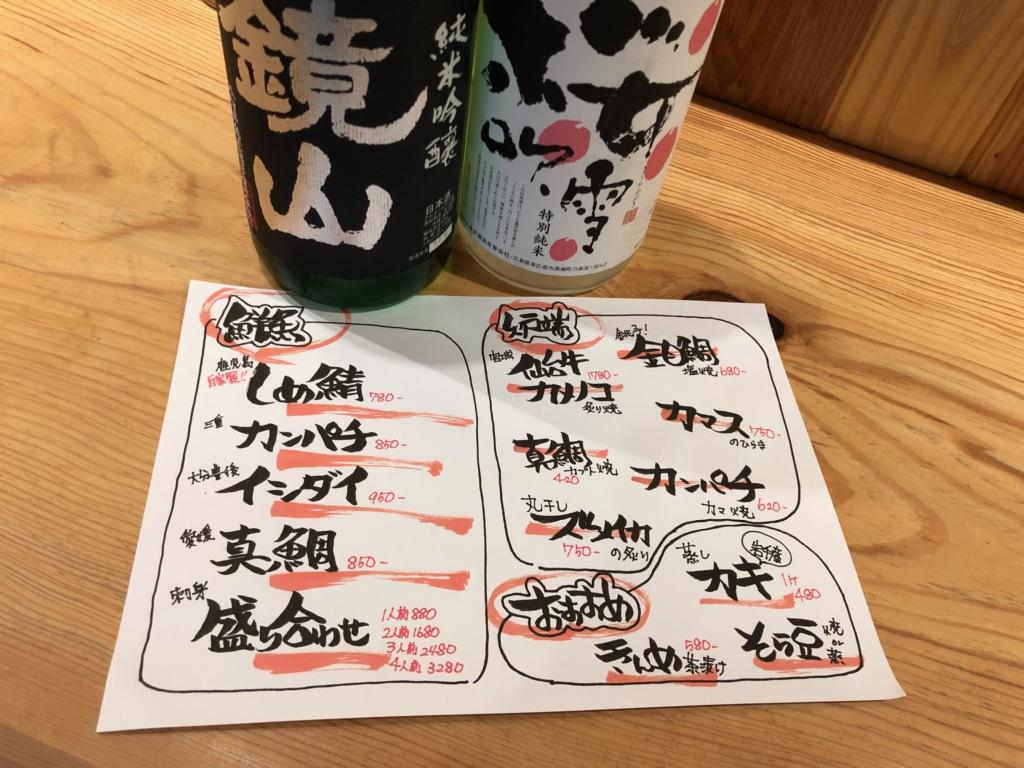 鏡山
純米吟醸
日本酒
桜吹雪
特別純米
鮮魚
鹿児島
自家製!!
しめ鯖 780-
三重
カンパチ 850-
大分豊後
イシダイ 950-
愛媛
真鯛 850-
刺身
盛り合わせ
1人前 880
2人前 1680
3人前 2480
4人前 3280
炉端
宮城
仙台牛 1780-
カメノコ
炙り焼
銚子!
金目鯛
塩焼 680-
カマス 750-
のひらき
真鯛
カブト焼
420
カンパチ
カマ焼 620-
丸干し
ズワイカ
750- の炙り
おすすめ
蒸し
岩手産
カキ 1ヶ
480
きんめ 580-
茶漬け
そら豆 焼 or 蒸